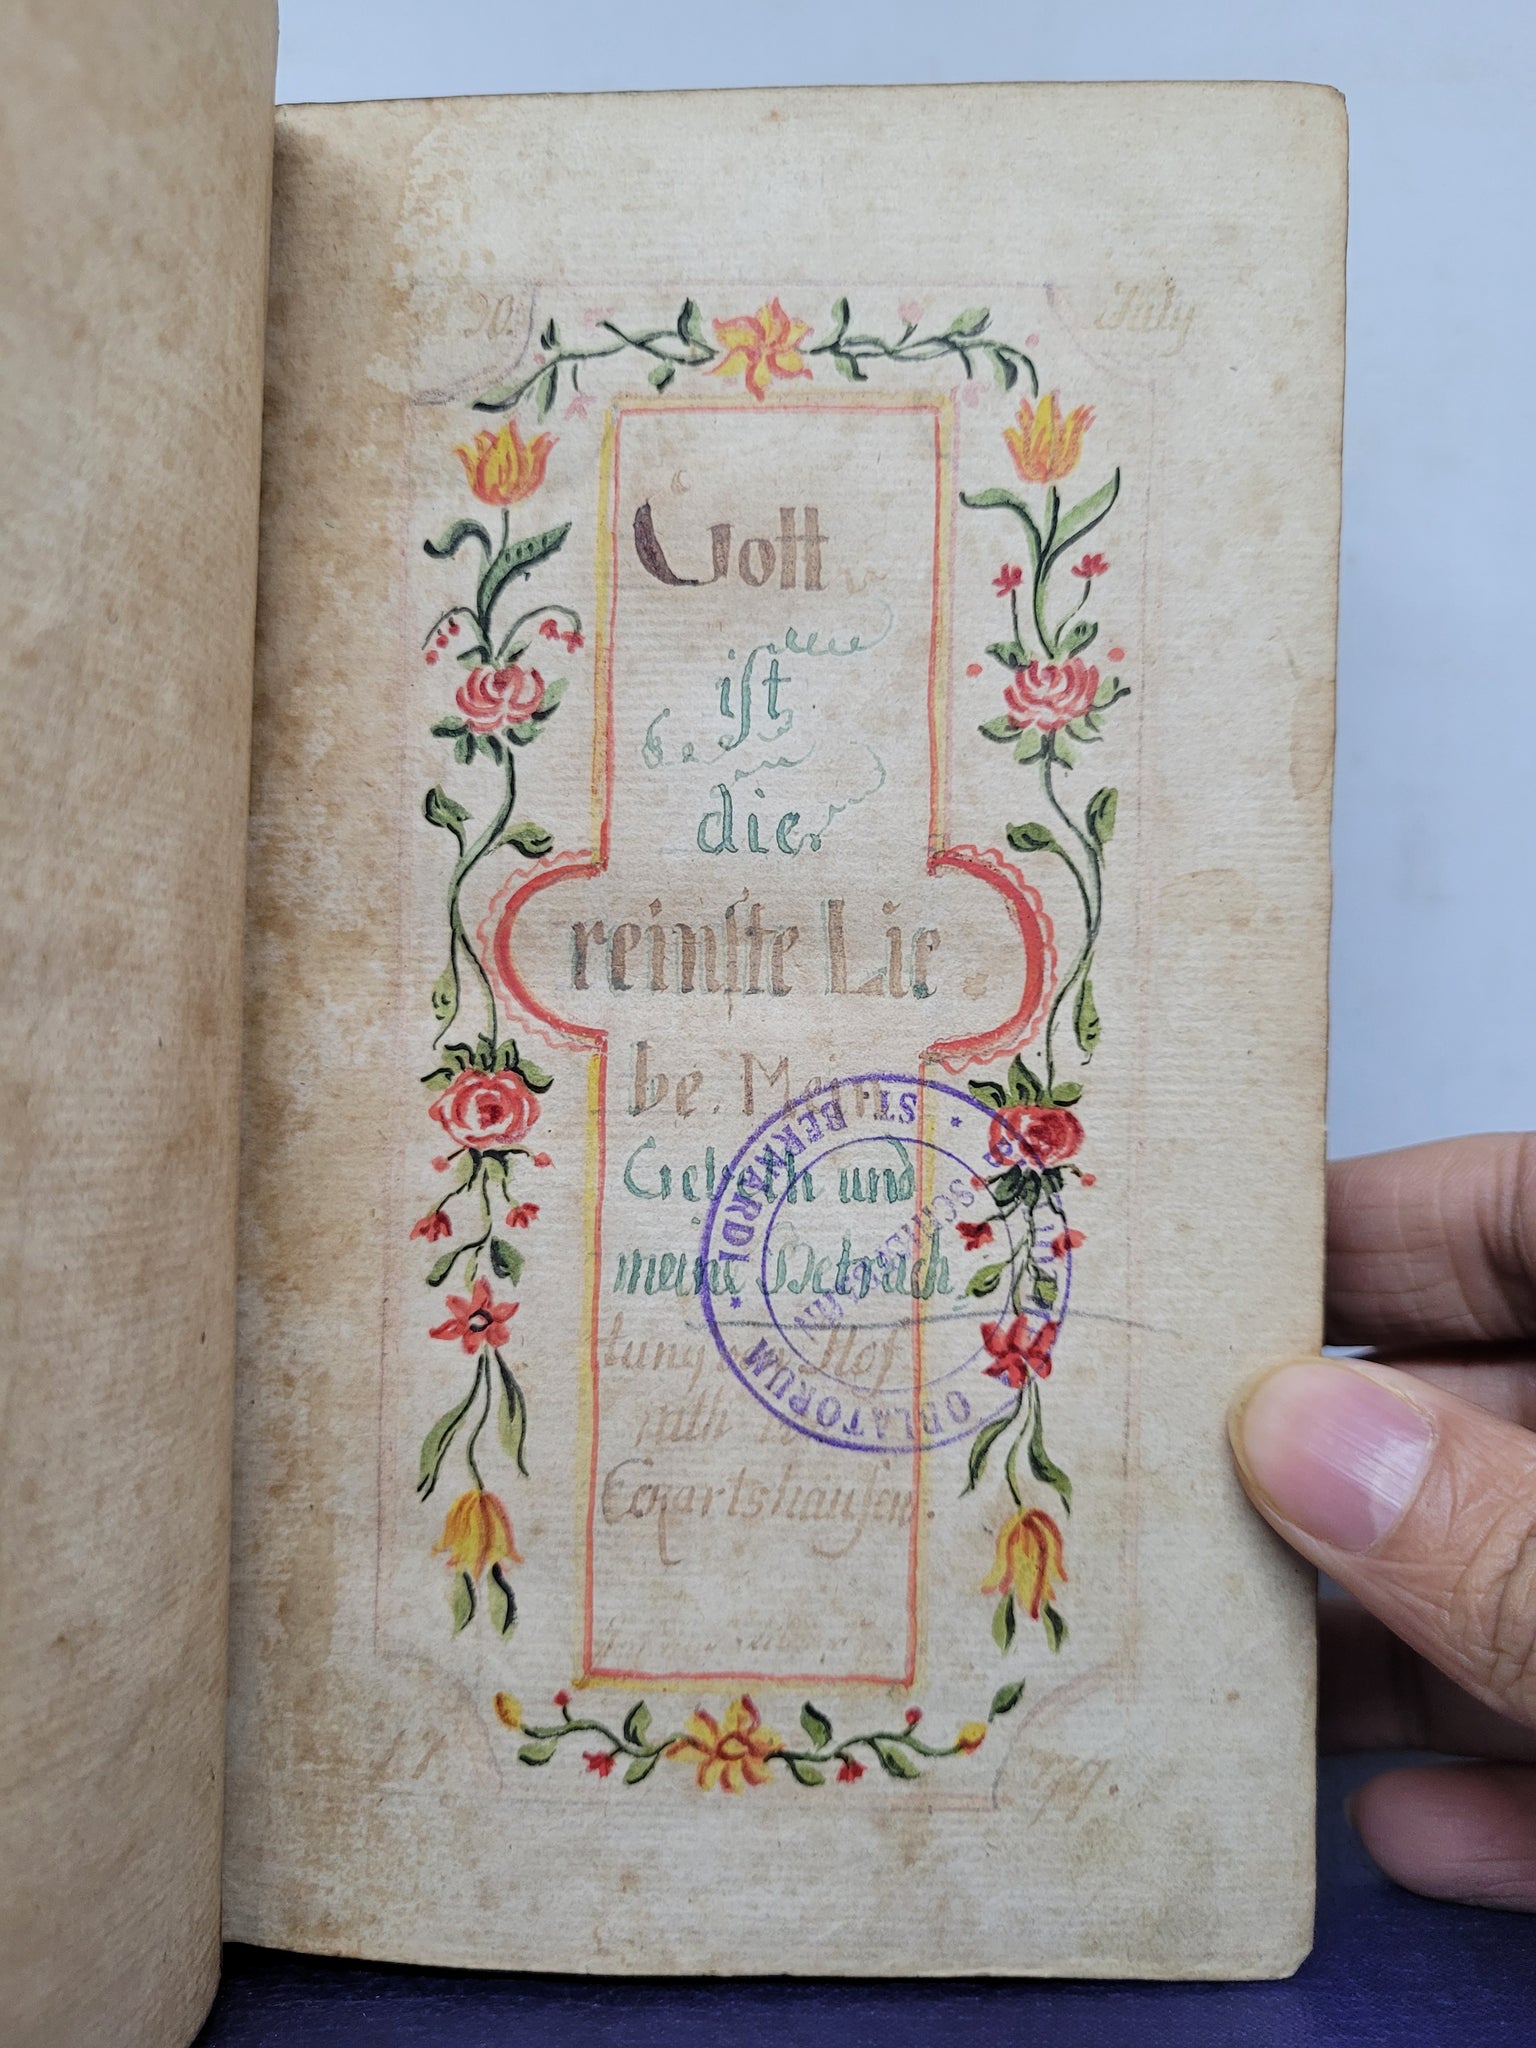 20. July
Gott
iſt
die
reinſte Lie
be. Mein
Gebeth und
meine Betrach
tung von Hof
rath von
Eckartshauſen.
17 99.
* ST. BERNARDI * OBLATORUM
SCHEYERN